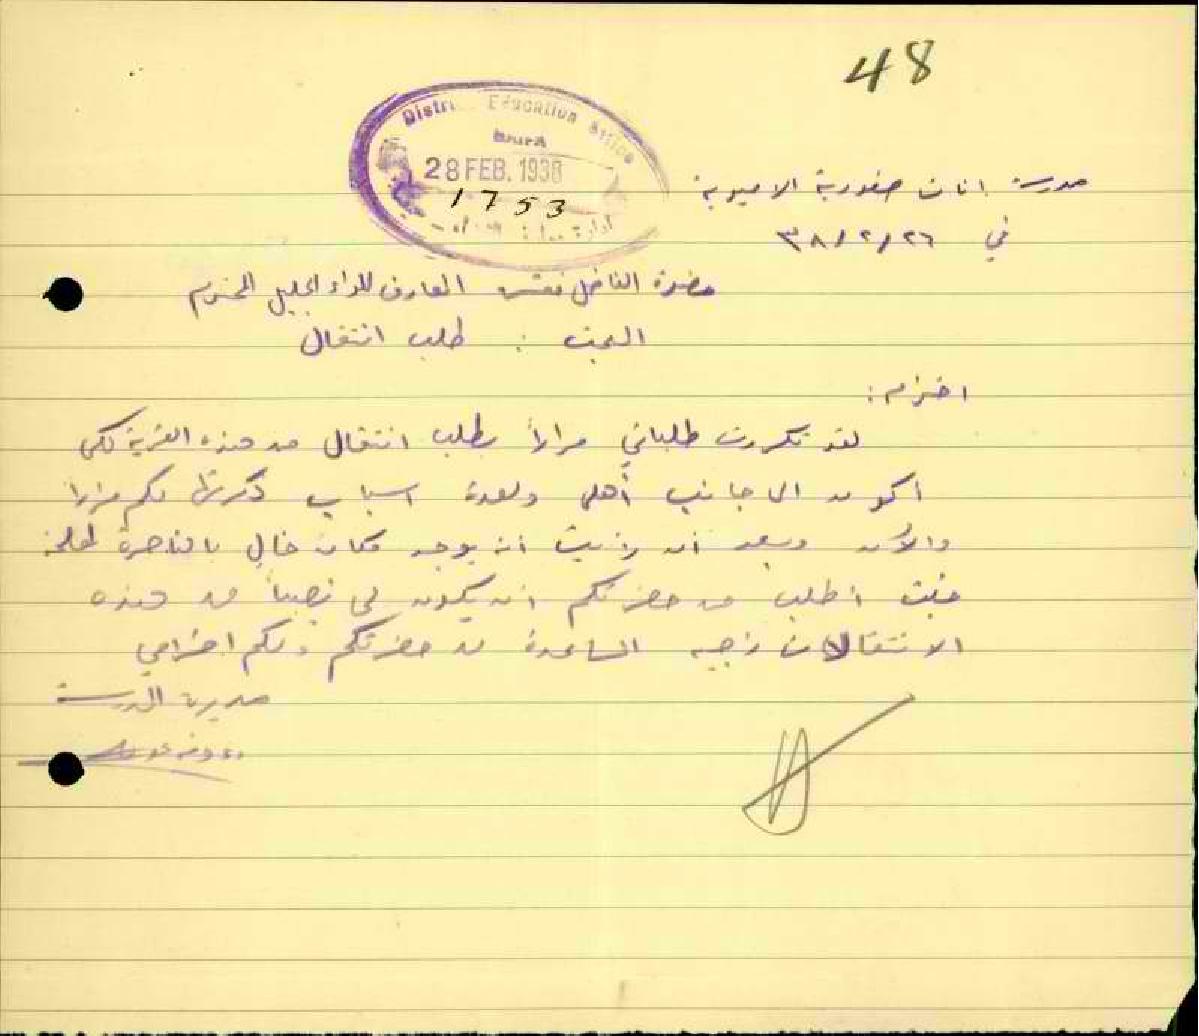 48
District Education Office
28 FEB. 1938
1753
مدرسة اناث صفورية الاميرية
في ٢٦/٢/٣٨
حضرة الفاضل مفتش المعارف للواء الجليل المحترم
البحث : طلب انتقال
احترام :
لقد تكررت طلباتي مراراً بطلب انتقال من هذه القرية لكي
اكون الى جانب أهلي ولعدة اسباب ذكرتها لكم مراراً
والآن وبعد ان رأيت ان يوجد مكان خال بالناصرة لمعلمة
جئت اطلب من حضرتكم ان يكون لي نصيباً من هذه
الانتقالات راجيه المساعدة من حضرتكم ولكم احترامي
مديرة المدرسة